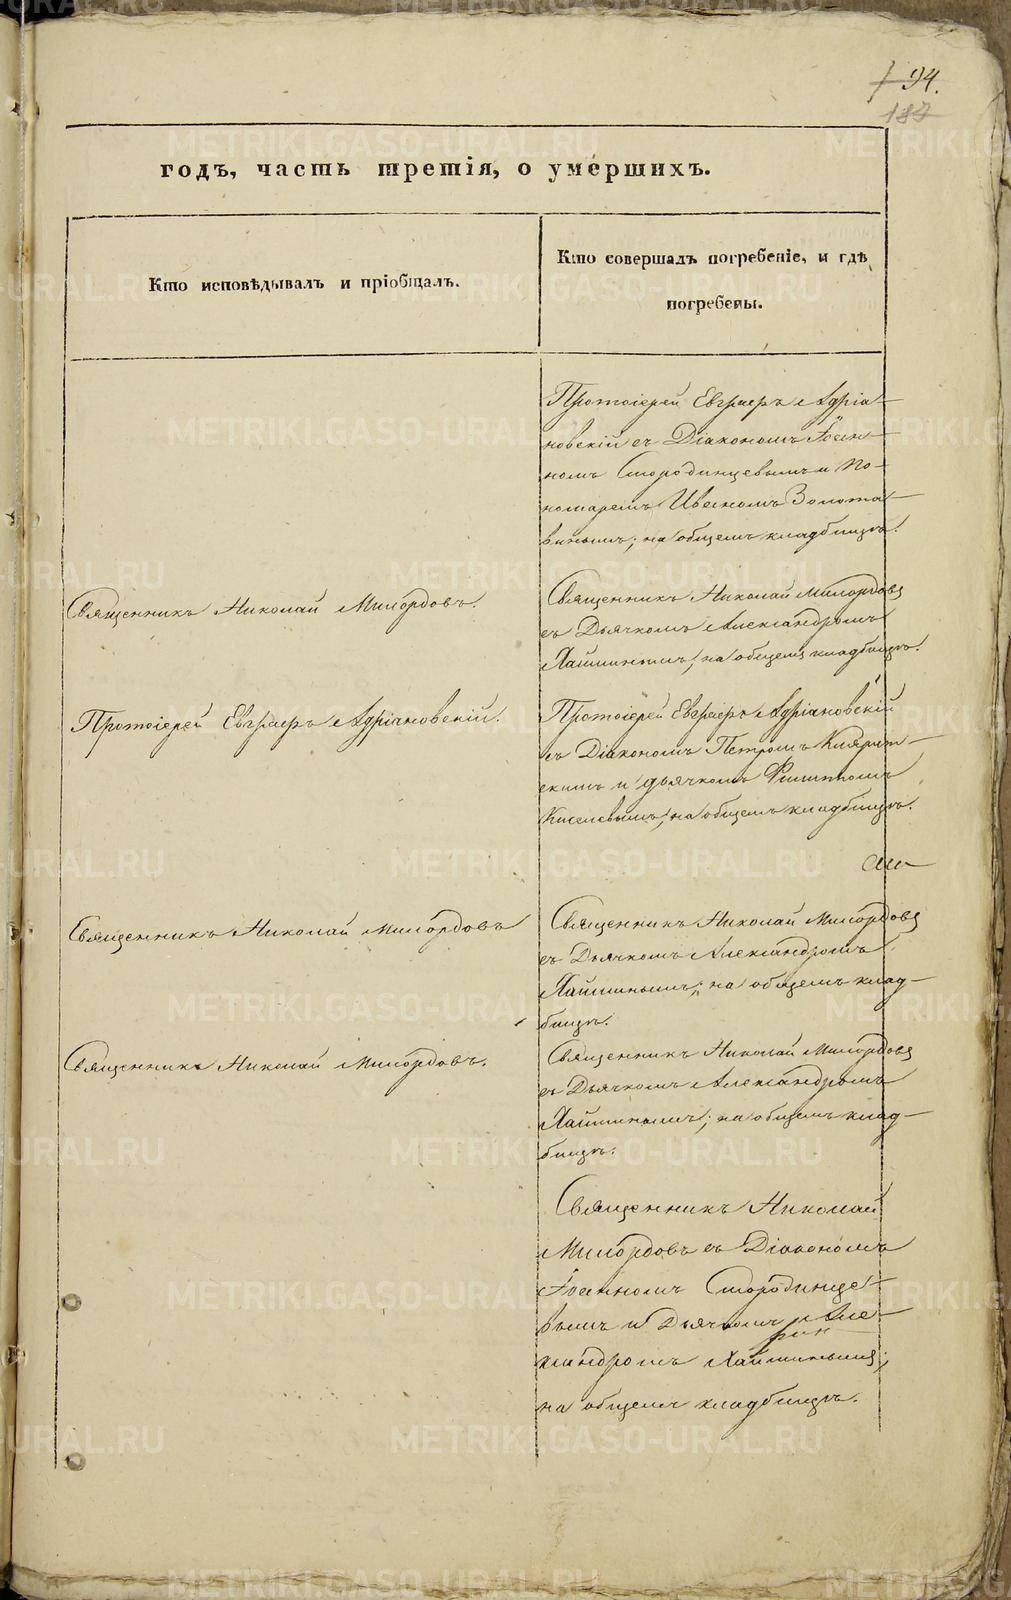 94.
187
годъ, часть третія, о умершихъ.
Кто исповѣдывалъ и пріобщалъ.
Кто совершалъ погребеніе, и гдѣ
погребены.
Протоіерей Евграфъ Адріа-
новскій съ Діакономъ Іоан-
номъ Смородинцевымъ и по-
номаремъ Иваномъ Золота-
винымъ; на общемъ кладбищѣ.
Священникъ Николай Милордовъ.
Священникъ Николай Милордовъ
съ Дьячкомъ Александромъ
на общемъ кладбищѣ.
Протоіерей Евграфъ Адріановскій.
Протоіерей Евграфъ Адріановскій
съ Діакономъ Петромъ
и дьячкомъ Филиппомъ
Киселевымъ, на общемъ кладбищѣ.
Священникъ Николай Милордовъ
Священникъ Николай Милордовъ
съ Дьячкомъ Александромъ
на общемъ клад-
бищѣ.
Священникъ Николай Милордовъ.
Священникъ Николай Милордовъ
съ Дьячкомъ Александромъ
на общемъ клад-
бищѣ.
Священникъ Николай
Милордовъ съ Діакономъ
Іоанномъ Смородинце-
вымъ и Дьячкомъ Але-
ксандромъ
на общемъ кладбищѣ.
METRIKI.GASO-URAL.RU